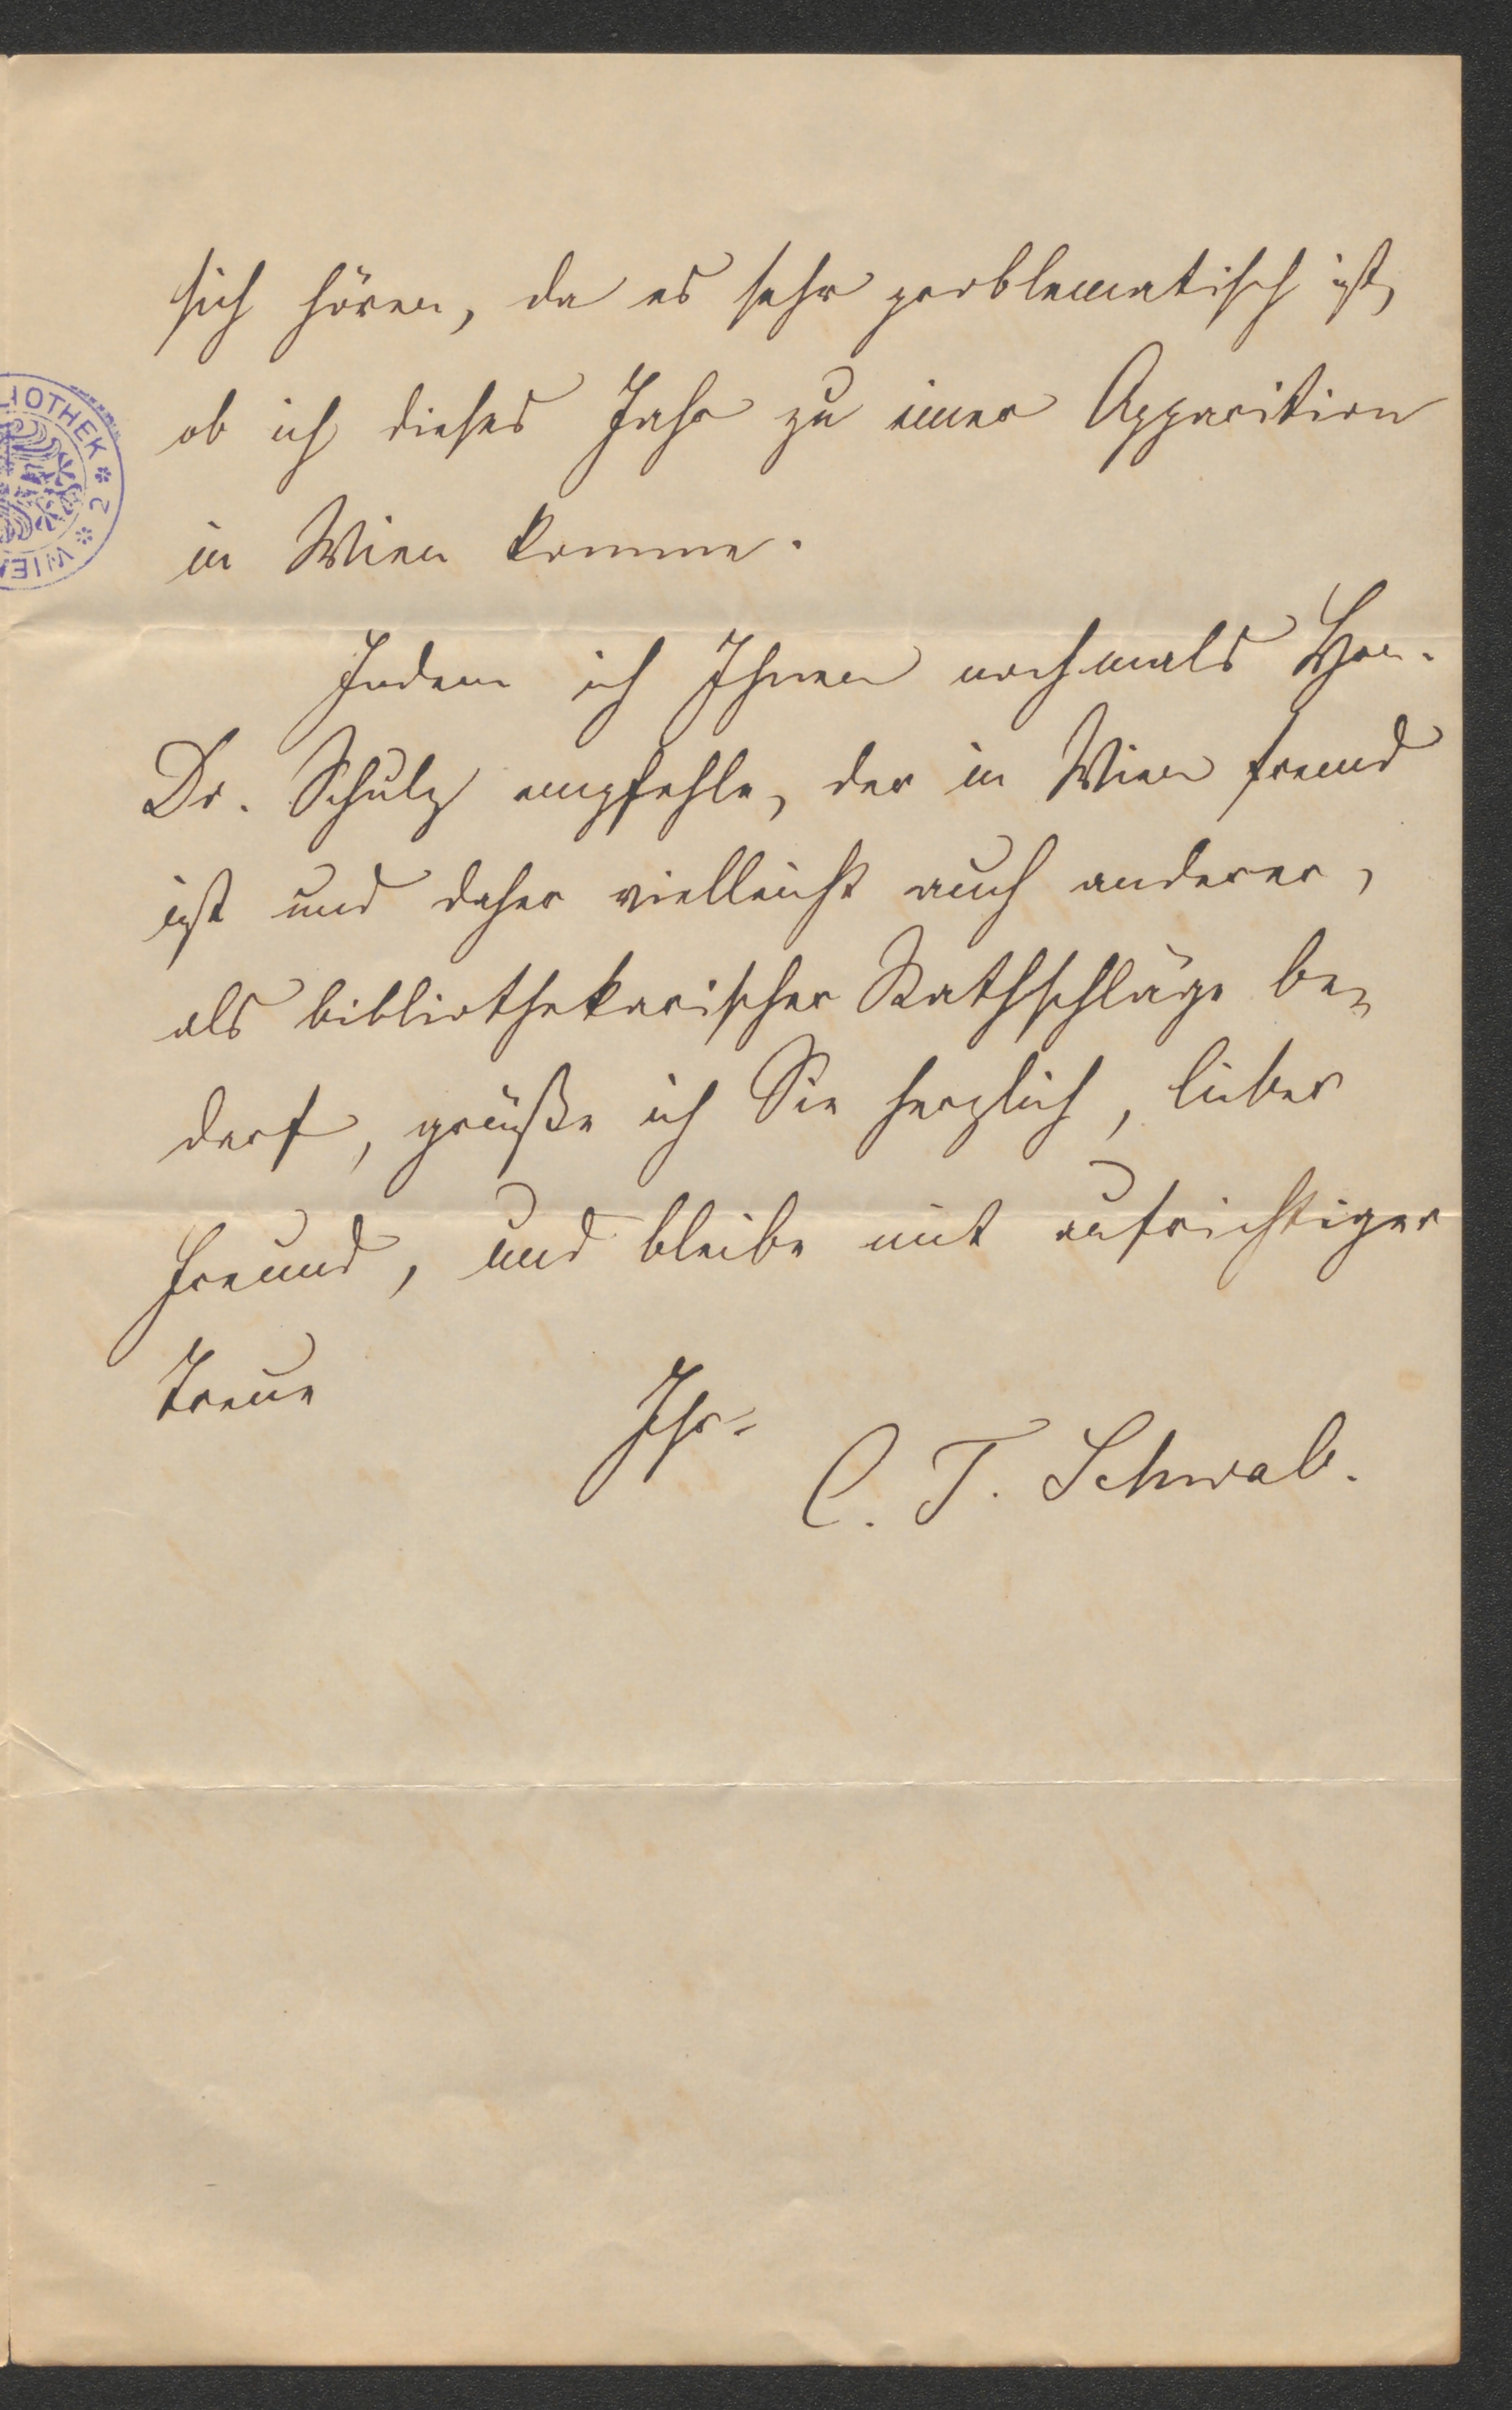 sich hören, da es sehr problematisch ist,
ob ich dieses Jahr zu einer Apparition
in Wien komme.
Indem ich Ihnen nochmals Hrn.
Dr. Schulz empfehle, der in Wien fremd
ist und daher vielleicht auch anderer,
als bibliothekarischer Rathschläge be-
darf, grüße ich Sie herzlich, lieber
Freund, und bleibe mit aufrichtiger
Treue
Ihr
C. T. Schwab.
IOTHEK * 2 * WIEN